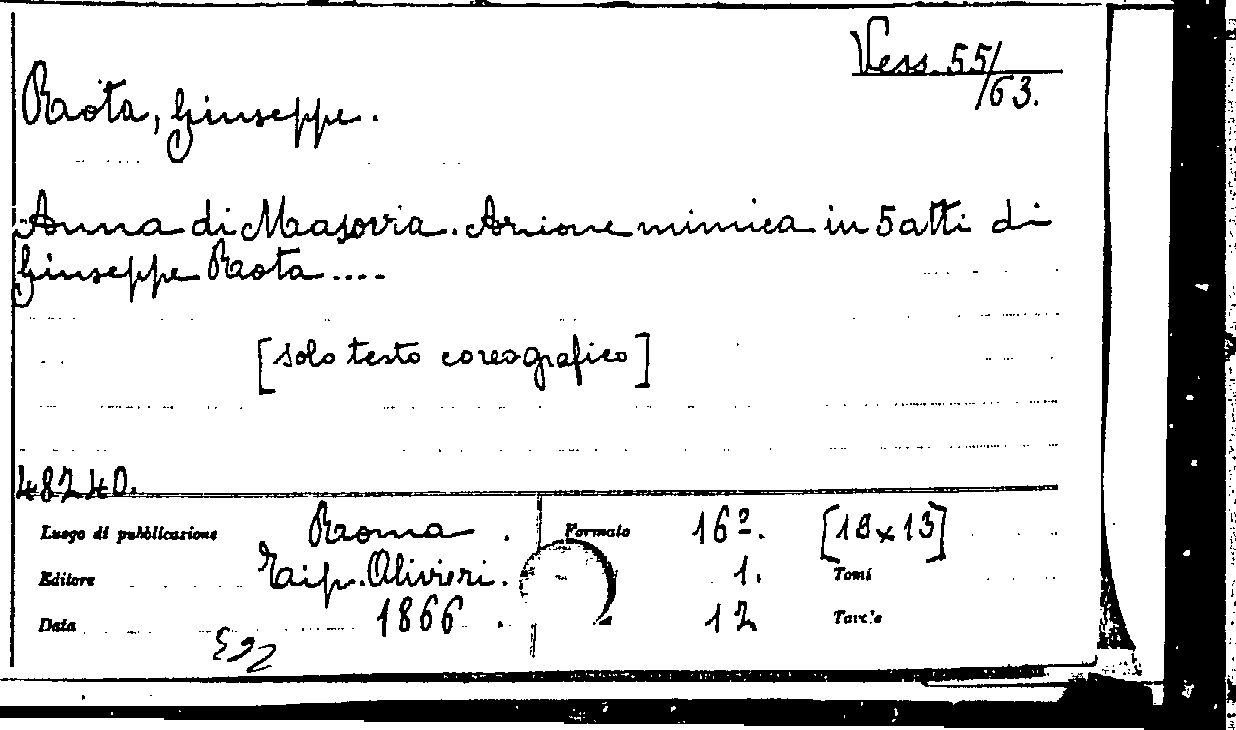 Vess. 55/
/63.
Rota, Giuseppe.
Anna di Masovia. Azione mimica in 5 atti di
Giuseppe Rota ....
[solo testo coreografico]
48240.
Luogo di pubblicazione Roma. Formato 16º. [18x13]
Editore Tip. Olivieri. 1. Tomi
Data 1866. 12 Tavole